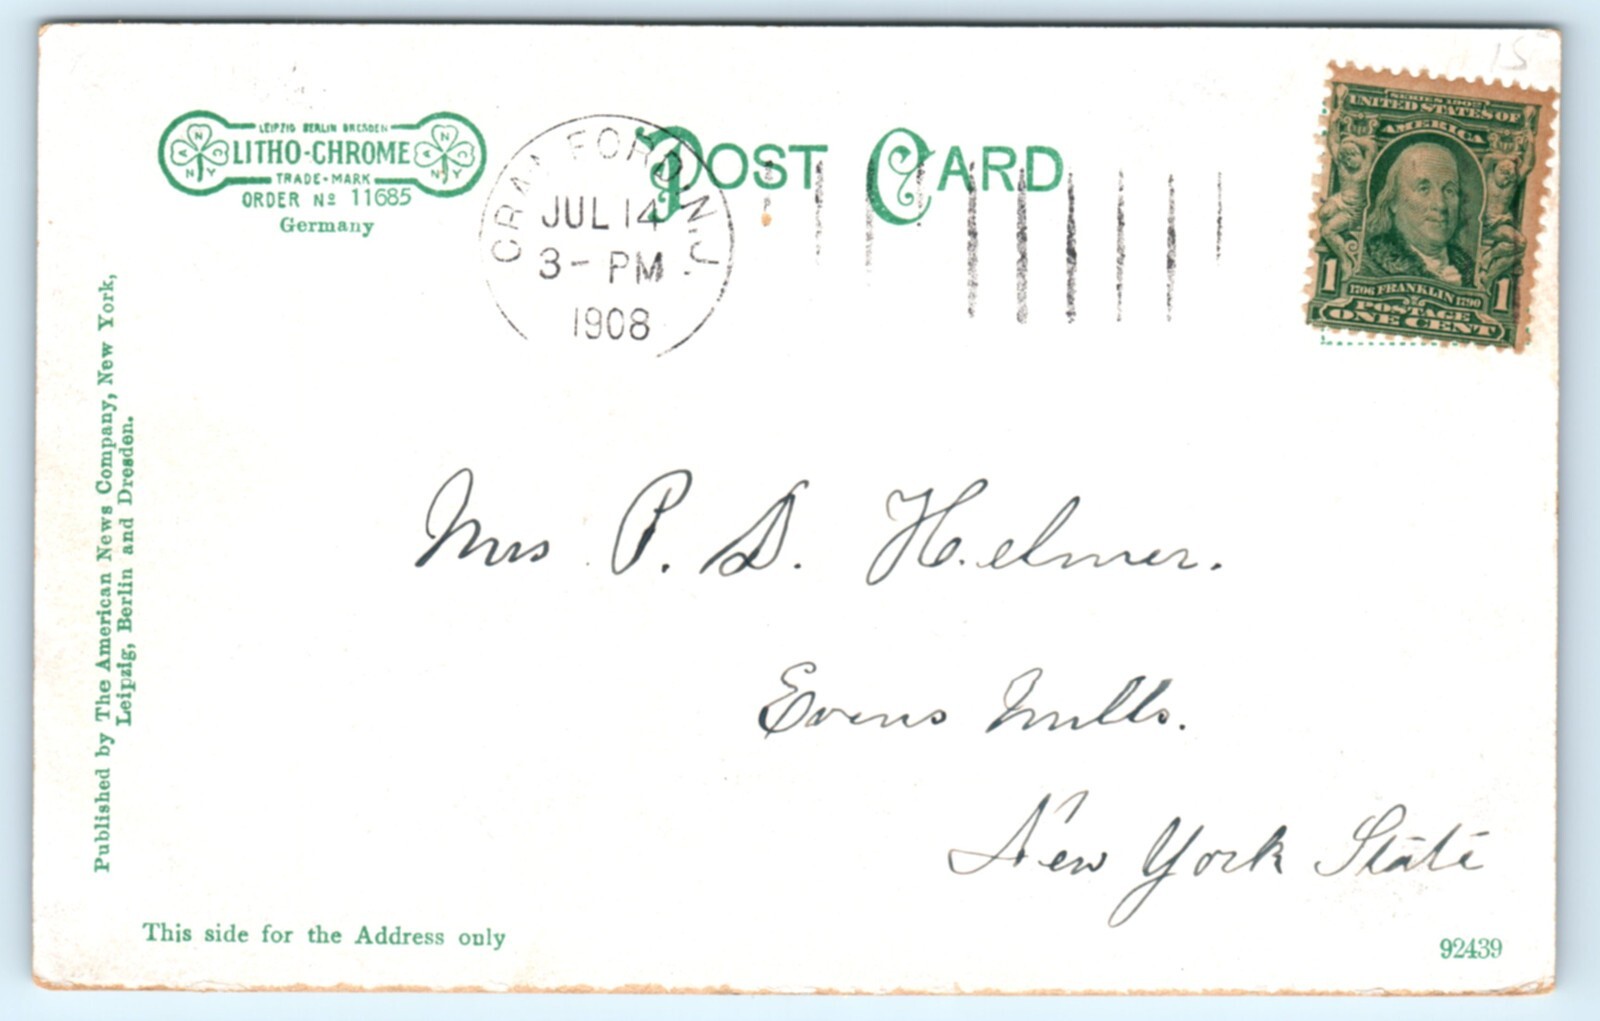 15
LEIPZIG BERLIN DRESDEN
LITHO-CHROME
TRADE-MARK
ORDER Nº 11685
Germany
A N C N Y
A N C N Y
POST CARD
CRANFORD, N.J.
JUL 14
3 - PM
1908
SERIES 1902
UNITED STATES OF
AMERICA
1706 FRANKLIN 1790
1 1
POSTAGE
ONE CENT
Published by The American News Company, New York,
Leipzig, Berlin and Dresden.
Mrs P. D. Helmer.
Evens Mills.
New York State
This side for the Address only
92439